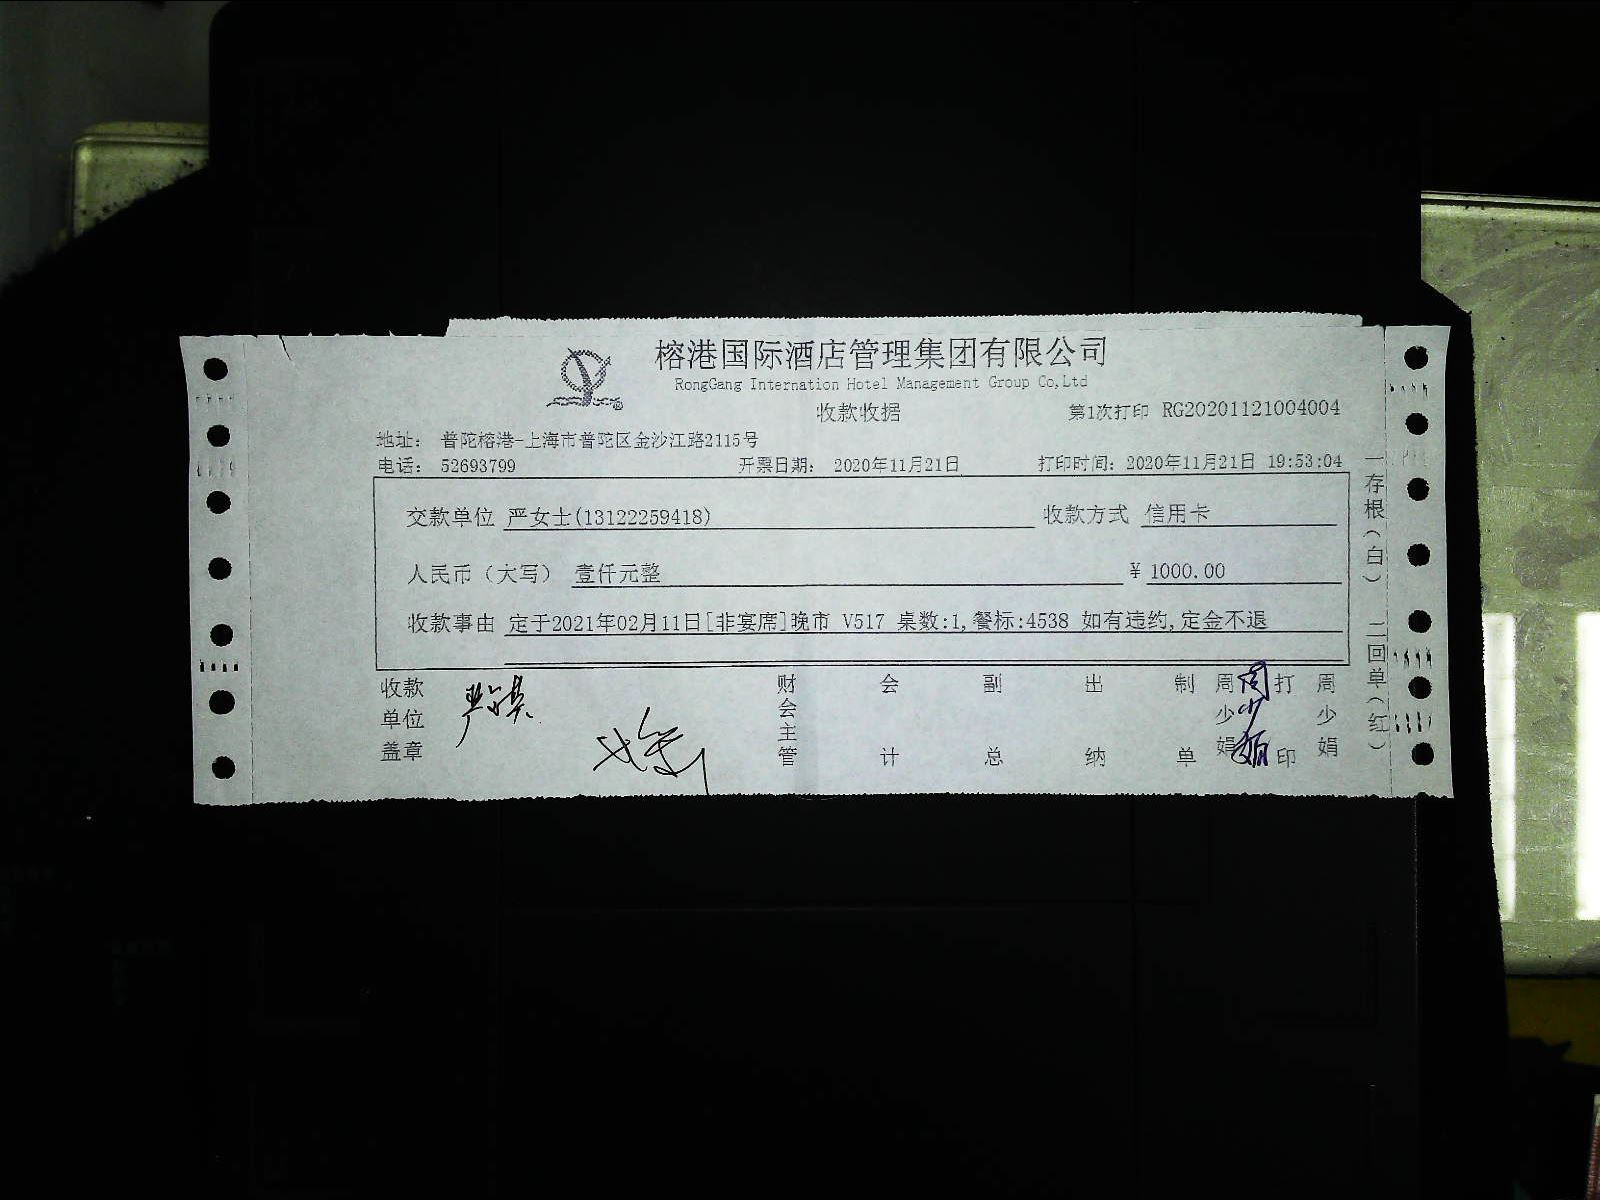 榕港国际酒店管理集团有限公司
RongGang Internation Hotel Management Group Co,Ltd
收款收据
第1次打印 RG20201121004004
地址： 普陀榕港-上海市普陀区金沙江路2115号
电话： 52693799 开票日期： 2020年11月21日 打印时间: 2020年11月21日 19:53:04
交款单位 严女士(13122259418) 收款方式 信用卡
人民币（大写） 壹仟元整 ¥ 1000.00
收款事由 定于2021年02月11日[非宴席]晚市 V517 桌数:1,餐标:4538 如有违约,定金不退
收款单位盖章 财会主管 会计 副总 出纳 制单 周少娟 周少娟 打印 周少娟
一存根（白） 二回单（红）